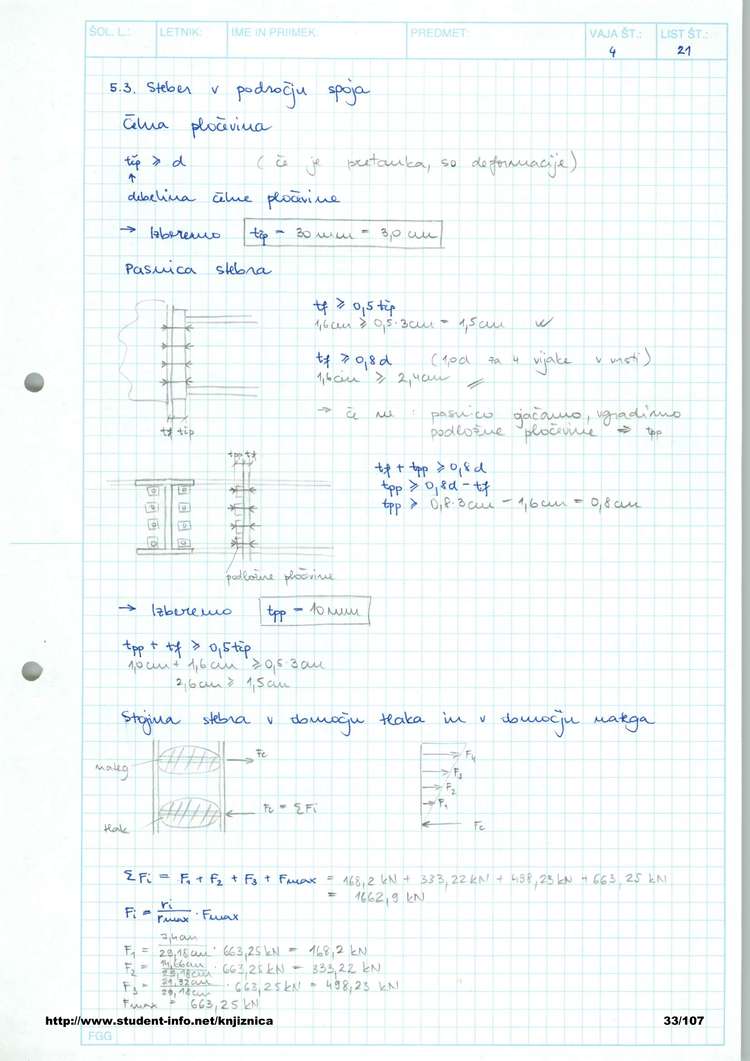 ŠOL. L.: LETNIK: IME IN PRIIMEK: PREDMET: VAJA ŠT.: LIST ŠT.:
4 21
5.3. Steber v področju spoja
Čelna pločevina
tčp ≥ d (če je pretanka, so deformacije)
↑
debelina čelne pločevine
→ Izberemo tčp = 30 mm = 3,0 cm
Pasnica stebra
tf ≥ 0,5 tčp
1,6 cm ≥ 0,5·3 cm = 1,5 cm
tf ≥ 0,8 d (1,0d za 4 vijake v vrsti)
1,6 cm ≥ 2,4 cm
→ če ne: pasnico ojačamo, vgradimo
podložne pločevine ⇒ tpp
tf tčp
tpp tf
tf + tpp ≥ 0,8 d
tpp ≥ 0,8 d - tf
tpp ≥ 0,8·3 cm - 1,6 cm = 0,8 cm
podložne pločevine
→ Izberemo tpp = 10 mm
tpp + tf ≥ 0,5 tčp
1,0 cm + 1,6 cm ≥ 0,5·3 cm
2,6 cm ≥ 1,5 cm
Stojina stebra v območju tlaka in v območju natega
nateg
Fc
F4
F3
F2
F1
Fc = ΣFi
tlak
Fc
ΣFi = F1 + F2 + F3 + Fmax = 168,2 kN + 333,22 kN + 498,23 kN + 663,25 kN
= 1662,9 kN
Fi = ri/rmax · Fmax
F1 = 7,4 cm/29,18 cm · 663,25 kN = 168,2 kN
F2 = 14,66 cm/29,18 cm · 663,25 kN = 333,22 kN
F3 = 21,92 cm/29,18 cm · 663,25 kN = 498,23 kN
Fmax = 663,25 kN
http://www.student-info.net/knjiznica 33/107
FGG